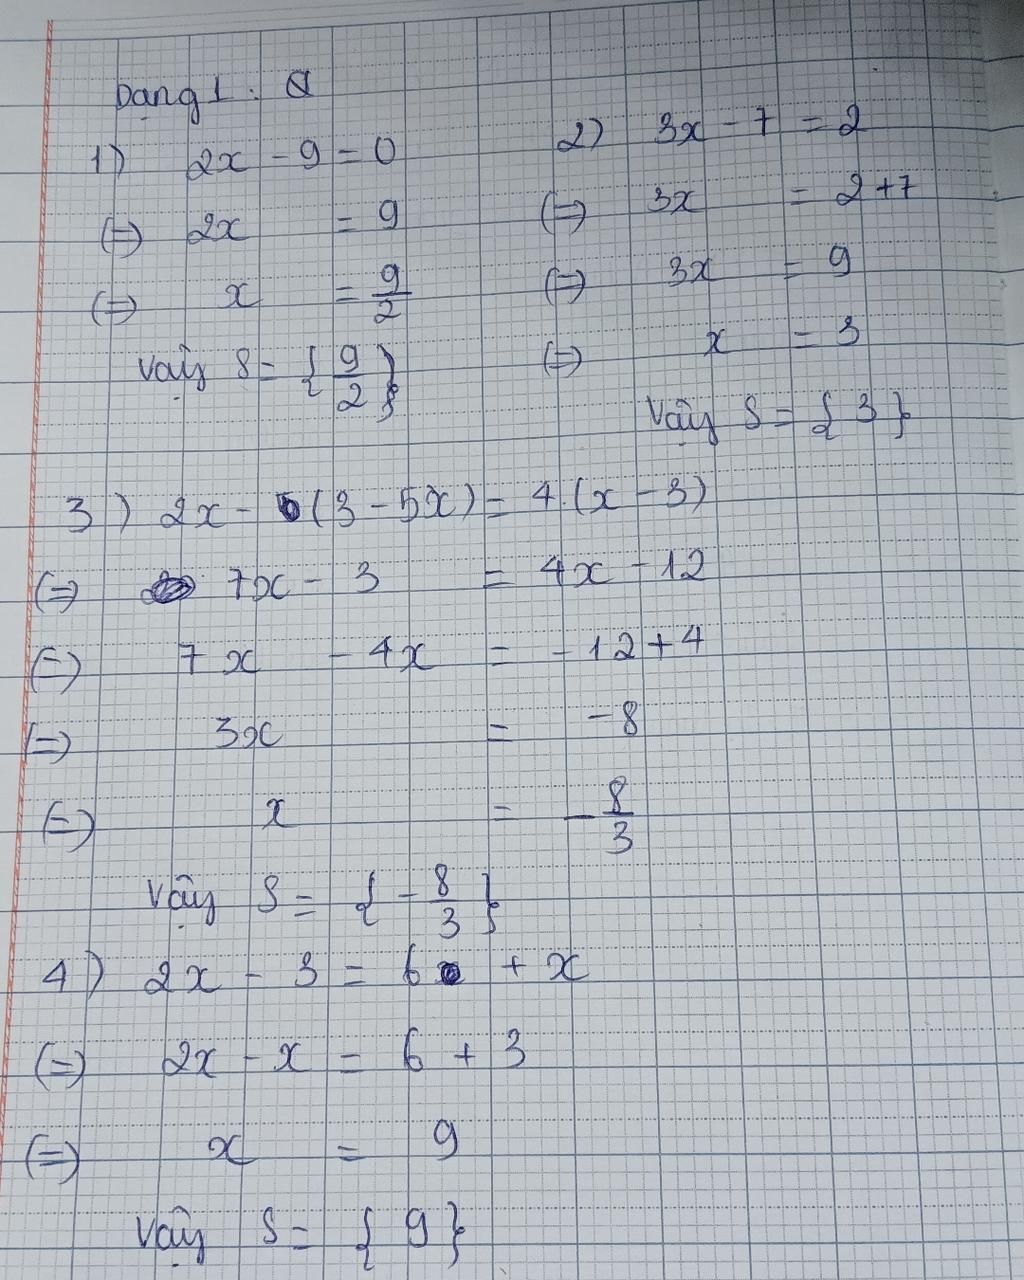 Dạng 1:
1) 2x - 9 = 0
(=) 2x = 9
(=) x = 9/2
Vậy S = { 9/2 }
2) 3x - 7 = 2
(=) 3x = 2 + 7
(=) 3x = 9
(=) x = 3
Vậy S = { 3 }
3) 2x - (3 - 5x) = 4.(x - 3)
(=) 7x - 3 = 4x - 12
(=) 7x - 4x = -12 + 4
(=) 3x = -8
(=) x = -8/3
Vậy S = { -8/3 }
4) 2x - 3 = 6 + x
(=) 2x - x = 6 + 3
(=) x = 9
Vậy S = { 9 }